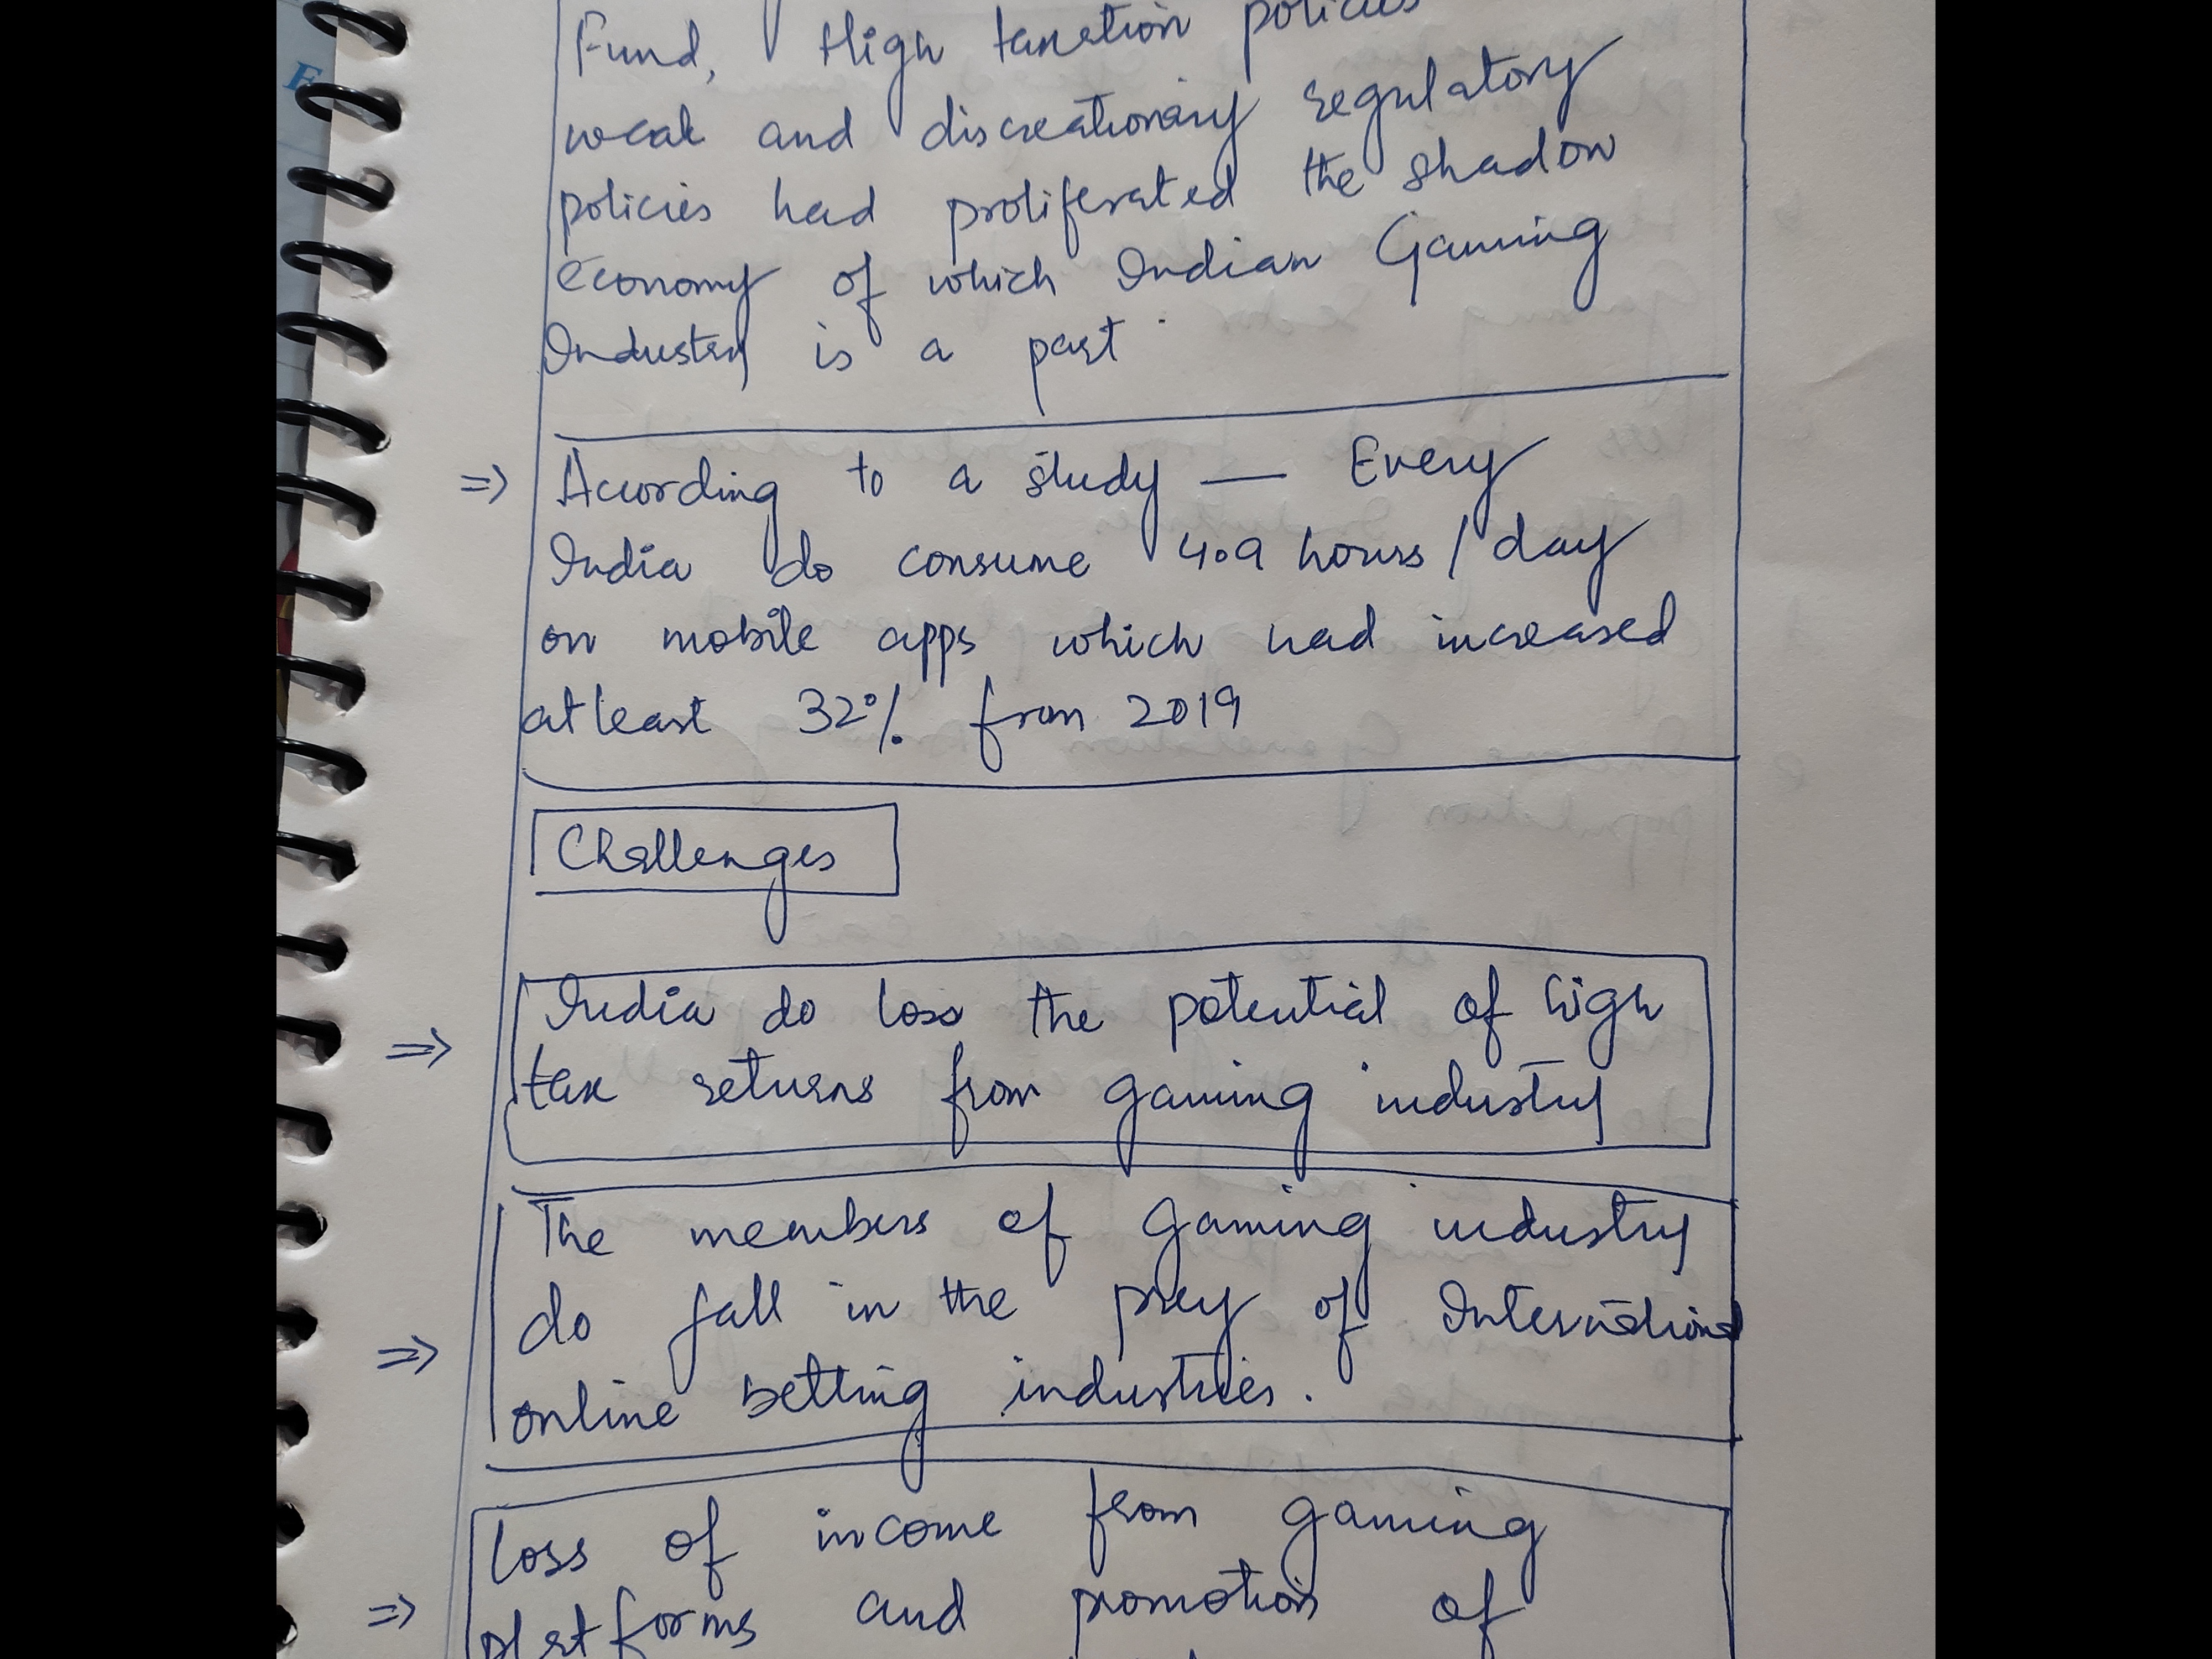 Fund, High taxation policies
weak and discreationary regulatory
policies had proliferated the shadow
economy of which Indian Gaming
Industry is a part
⇒ According to a study — Every
India do consume 4.9 hours / day
on mobile apps which had increased
atleast 32% from 2019
Challenges
⇒ India do loss the potential of high
tax returns from gaming industry
The members of gaming industry
do fall in the prey of International
⇒ online betting industries.
loss of income from gaming
⇒ platforms and promotion of